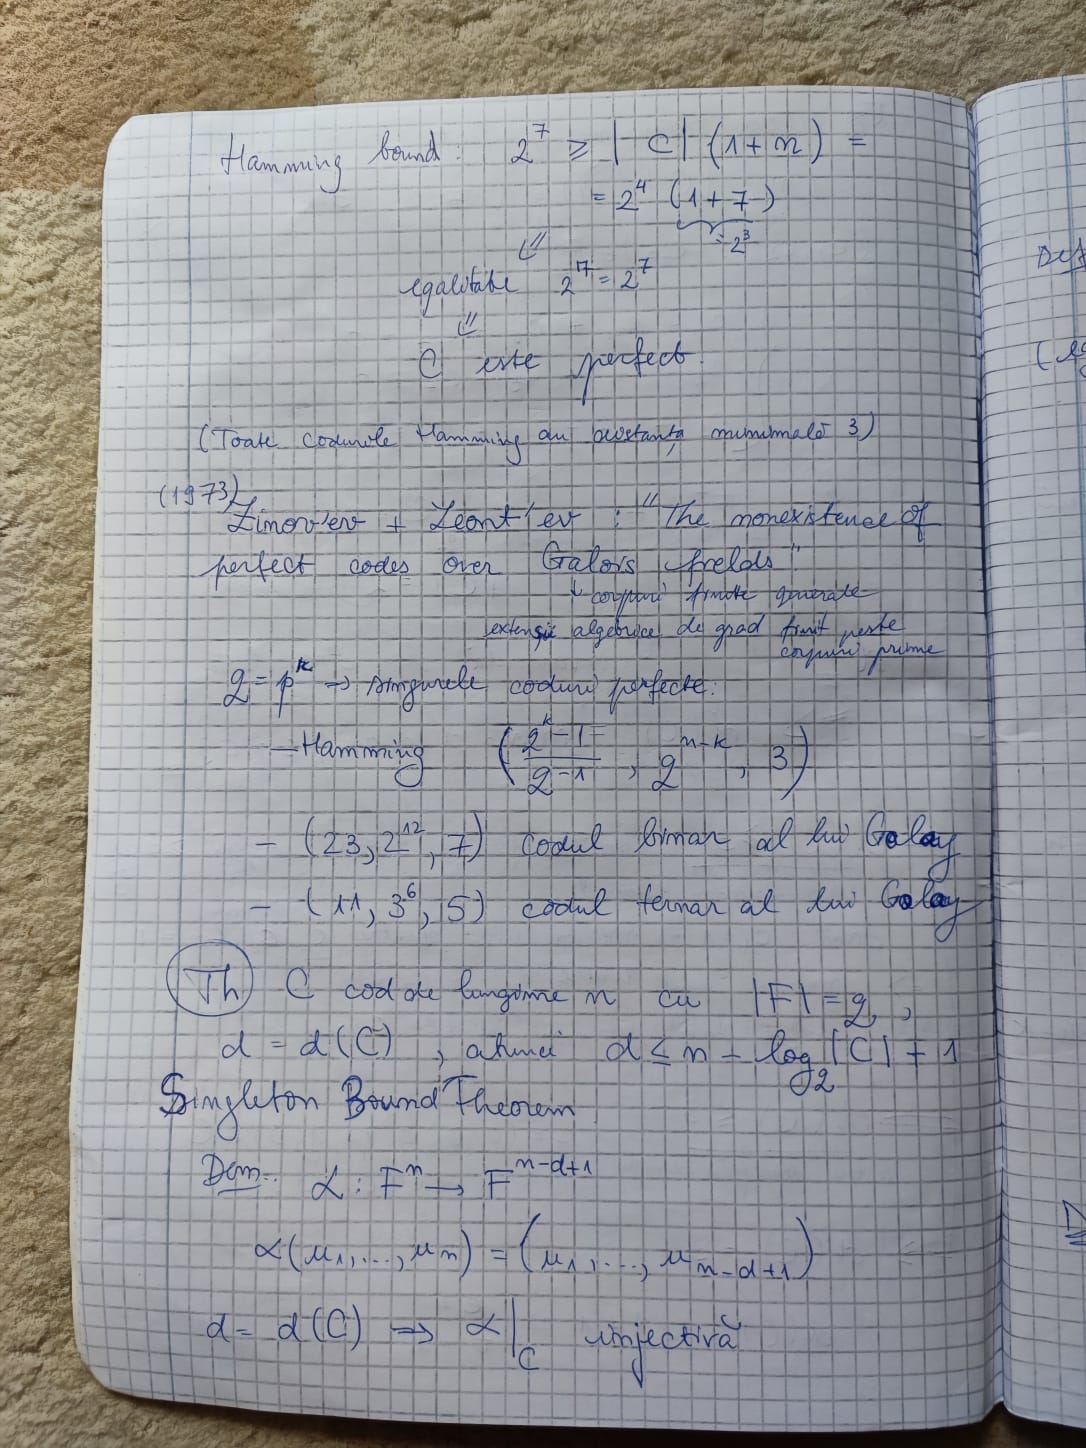 Hamming bound: 2^7 ≥ |C| (1+n) =
= 2^4 (1+7)
= 2^3
⇓
egalitate 2^7 = 2^7
⇓
C este perfect.
(Toate codurile Hamming au distanța minimală 3)
(1973)
Zinov'ev + Leont'ev : "The nonexistence of
perfect codes over Galois fields"
↓ corpuri finite generale
extensii algebrice de grad finit peste
corpuri prime
q = p^k → singurele coduri perfecte:
- Hamming ( (q^k - 1)/(q - 1) , q^{n-k} , 3 )
- (23, 2^12, 7) codul binar al lui Golay
- (11, 3^6, 5) codul ternar al lui Golay
Th C cod de lungime n cu |F| = q,
d = d(C) , atunci d ≤ n - log_q |C| + 1
Singleton Bound Theorem
Dem: α : F^n → F^{n-d+1}
α(u_1, ..., u_n) = (u_1, ..., u_{n-d+1})
d = d(C) ⇒ α|_C injectivă
Def